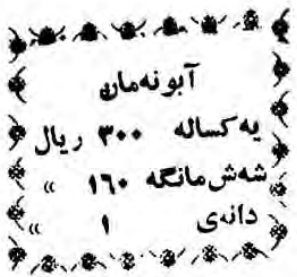 آبونه‌مان
یه‌كساله ٣٠٠ ریال
شه‌ش مانگه ١٦٠ »
دانه‌ی ١ »